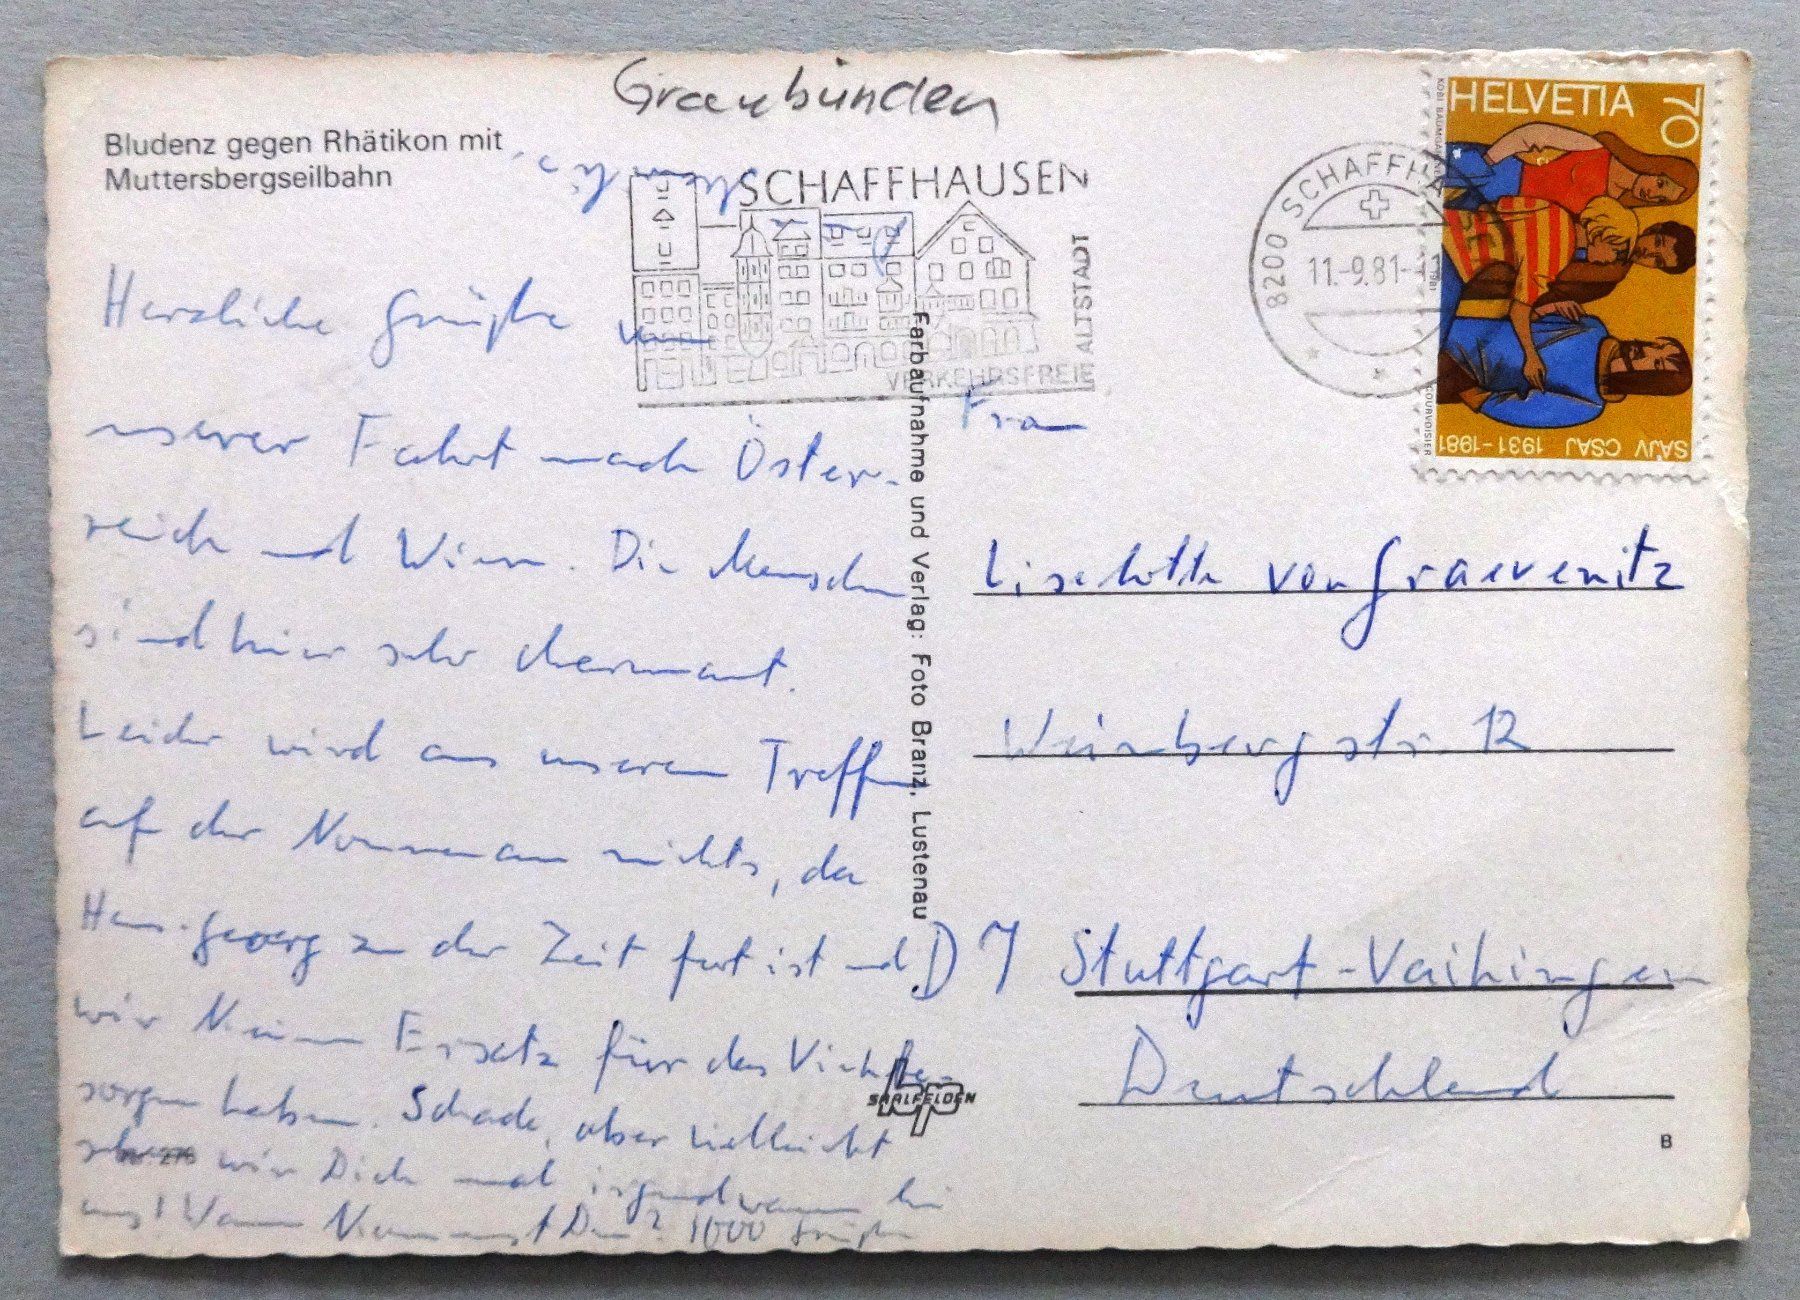 Graubünden
Bludenz gegen Rhätikon mit
Muttersbergseilbahn
SCHAFFHAUSEN
VERKEHRSFREIE ALTSTADT
8200 SCHAFFHAUSEN
11.-9.81-
HELVETIA 70
SAJV CSAJ 1931-1981
COURVOISIER
Herzliche Grüße von
unserer Fahrt nach Öster-
reich und Wien. Die Menschen
sind hier sehr charmant.
Leider wird aus unserem Treffen
auf der Nonnenau nichts, da
Hans-Georg zu der Zeit fort ist und
wir keinen Ersatz für das Viehbe-
sorgen haben. Schade, aber vielleicht
sehen wir Dich mal irgendwann bei
uns! Wann kommst Du? 1000 Grüße
Farbaufnahme und Verlag: Foto Branz, Lustenau
Frau
Liselotte von Graevenitz
Weinbergstr. 12
D 7 Stuttgart-Vaihingen
Deutschland
SAALFELDEN
B